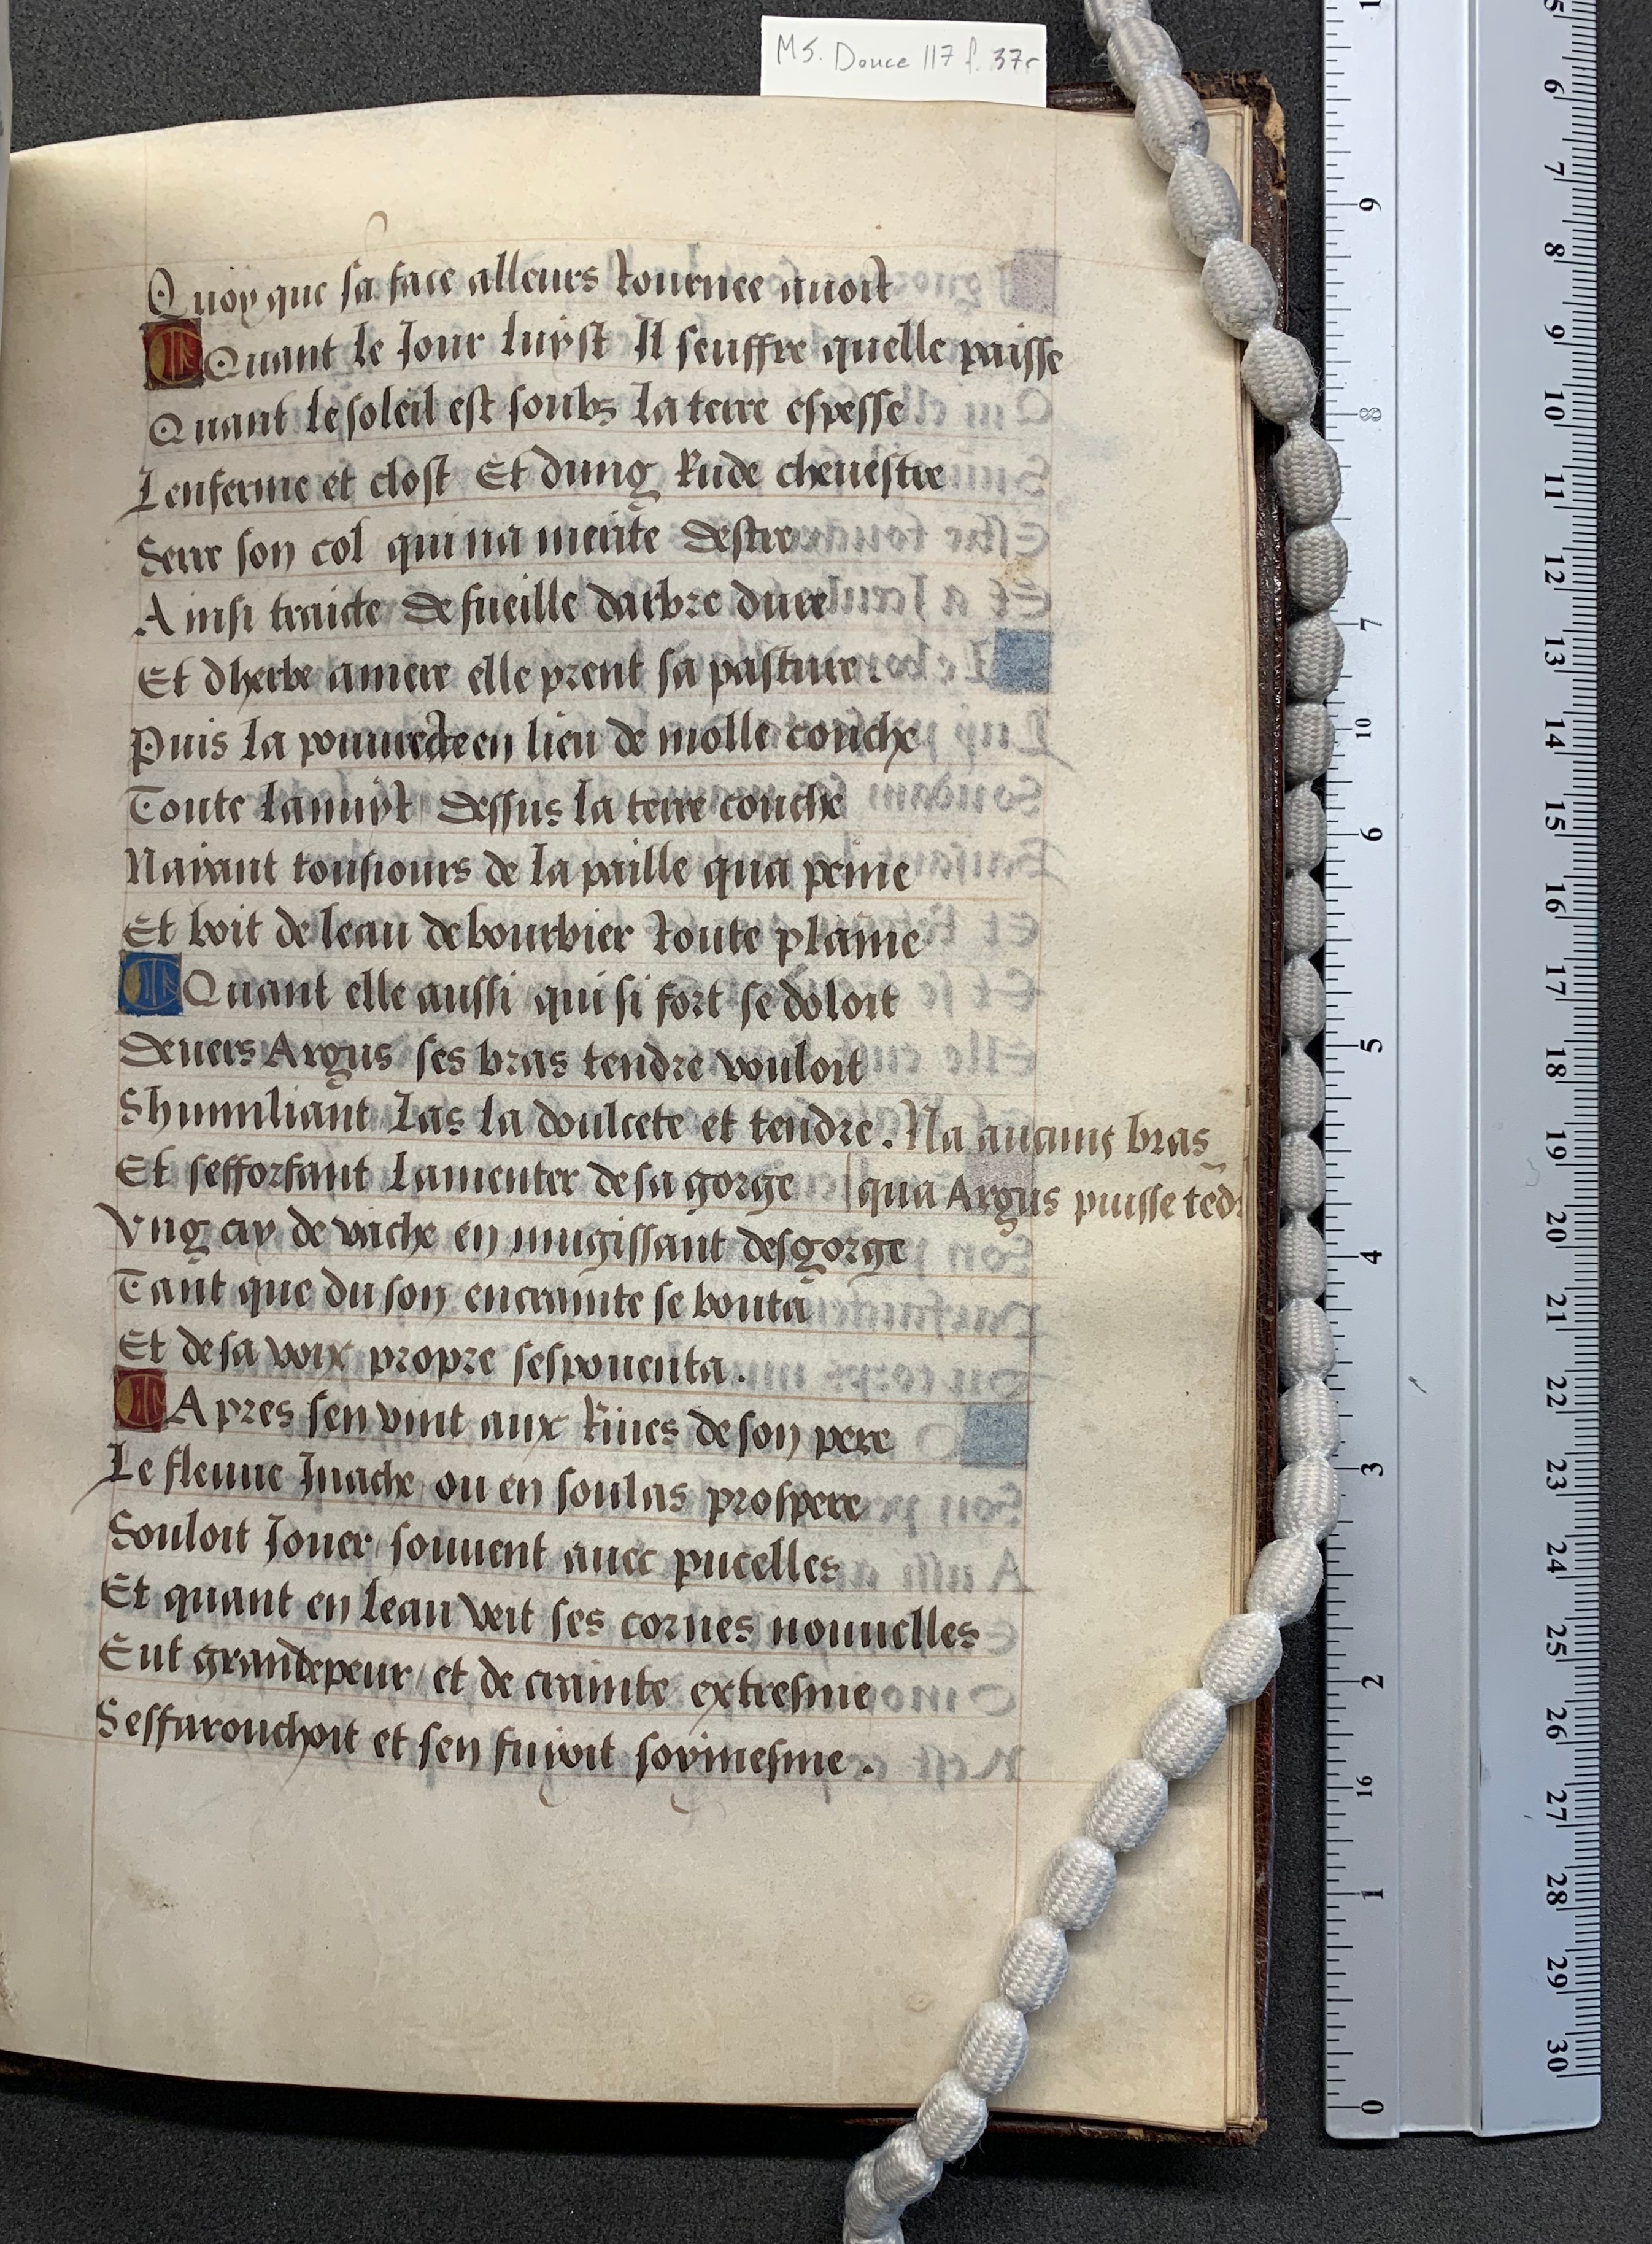 MS. Douce 117 f. 37r
Quoy que sa face alleurs tournee auoit
Quant le Jour luyst Il seuffre quelle paisse
Quant le soleil est soubz la terre espesse
Lenferme et clost Et dung Rude cheuestre
Serre son col qui na merite destre
Ainsi traicte de fueille darbre dure
Et dherbe amere elle prent sa pasture.
Puis la pouurecte en lieu de molle couche
Toute la nuyt dessus la terre couche
Nayant tousiours de la paille qua peine
Et boit de leau de bourbier toute plaine
Quant elle aussi qui si fort se doloit
Deuers Argus ses bras tendre vouloit
Shumiliant Las la doulcete et tendre. Na aucuns bras
Et sefforsant Lamenter de sa gorge qua Argus puisse tēdr
Vng cry de vache en mugissant desgorge
Tant que du son en crainte se bouta
Et de sa voix propre sespouenta.
Apres sen vint aux Riues de son pere
Le fleuue Inache ou en soulas prospere
Souloit Jouer/ souuent auec pucelles
Et quant en leau veit ses cornes nouuelles
Eut grande peur/ et de crainte extresme
Seffarouchoit et sen fuioit soymesme.
6
7
8
9
10
11
12
13
14
15
16
17
18
19
20
21
22
23
24
25
26
27
28
29
30
9
8
7
10
6
5
4
3
2
16
1
0